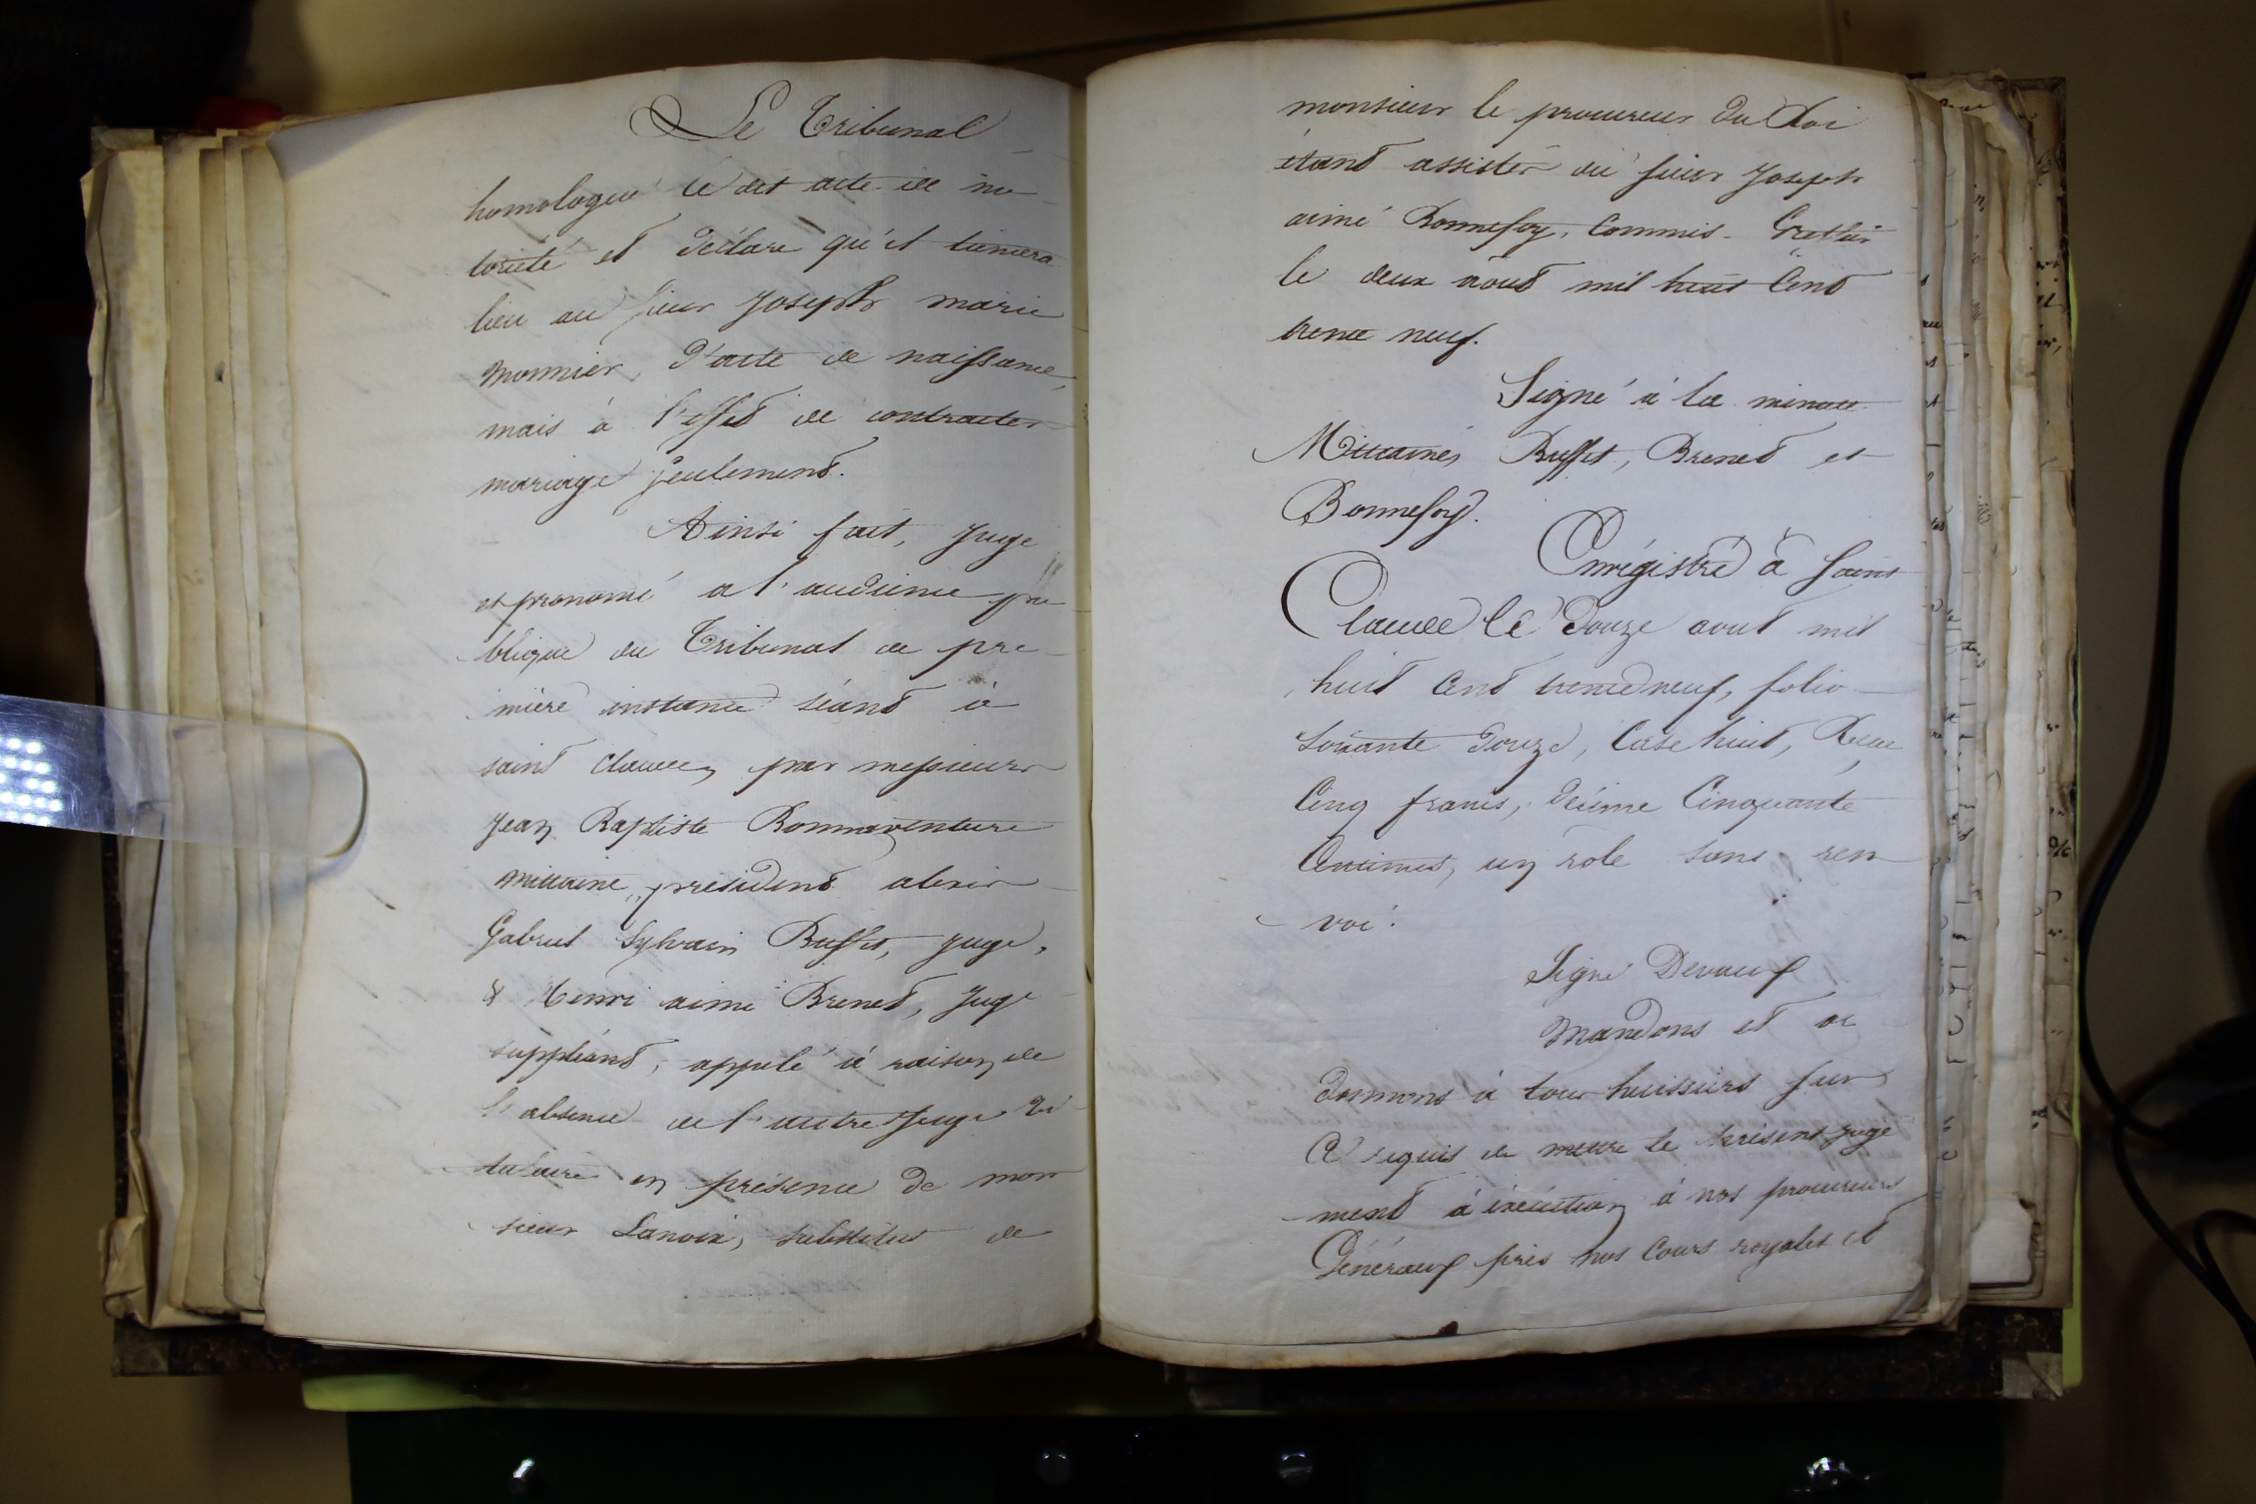 Le Tribunal
homologue le dit acte de no-
toriété et déclare qu'il tiendra
lieu au sieur Joseph marie
monnier, d'acte de naissance,
mais à l'effet de contracter
mariage seulement.
Ainsi fait, jugé
et prononcé a l'audience pu-
blique du Tribunal de pre-
mière instance séant à
saint claude, par messieurs
jean Baptiste Bonnaventure
mittaine, président alexis
Gabriel Sylvain Buffet, juge,
& henri aimé Brenet, juge
suppléant, appelé à raison de
l'absence de l'autre juge ti-
tulaire en présence de mon
sieur Lanoix, substitut de
monsieur le procureur du Roi
étant assisté du sieur Joseph
aimé Bonnefoy, Commis-Greffier
le deux août mil huit Cent
trente neuf.
Signé à la minute
Mittaine, Buffet, Brenet et
Bonnefoy.
Enrégistré à Saint
Claude le Douze aout mil
huit Cent trente neuf, folio
soixante Douze, Case huit, Reçu
Cinq francs, décime Cinquante
Centimes, un role sans ren
voi.
Signé Devaux
Mandons et or
donnons à tous huissiers sur
Ce requis de mettre le présent juge
ment à éxécution à nos procureurs
Généraux près nos Cours royales et